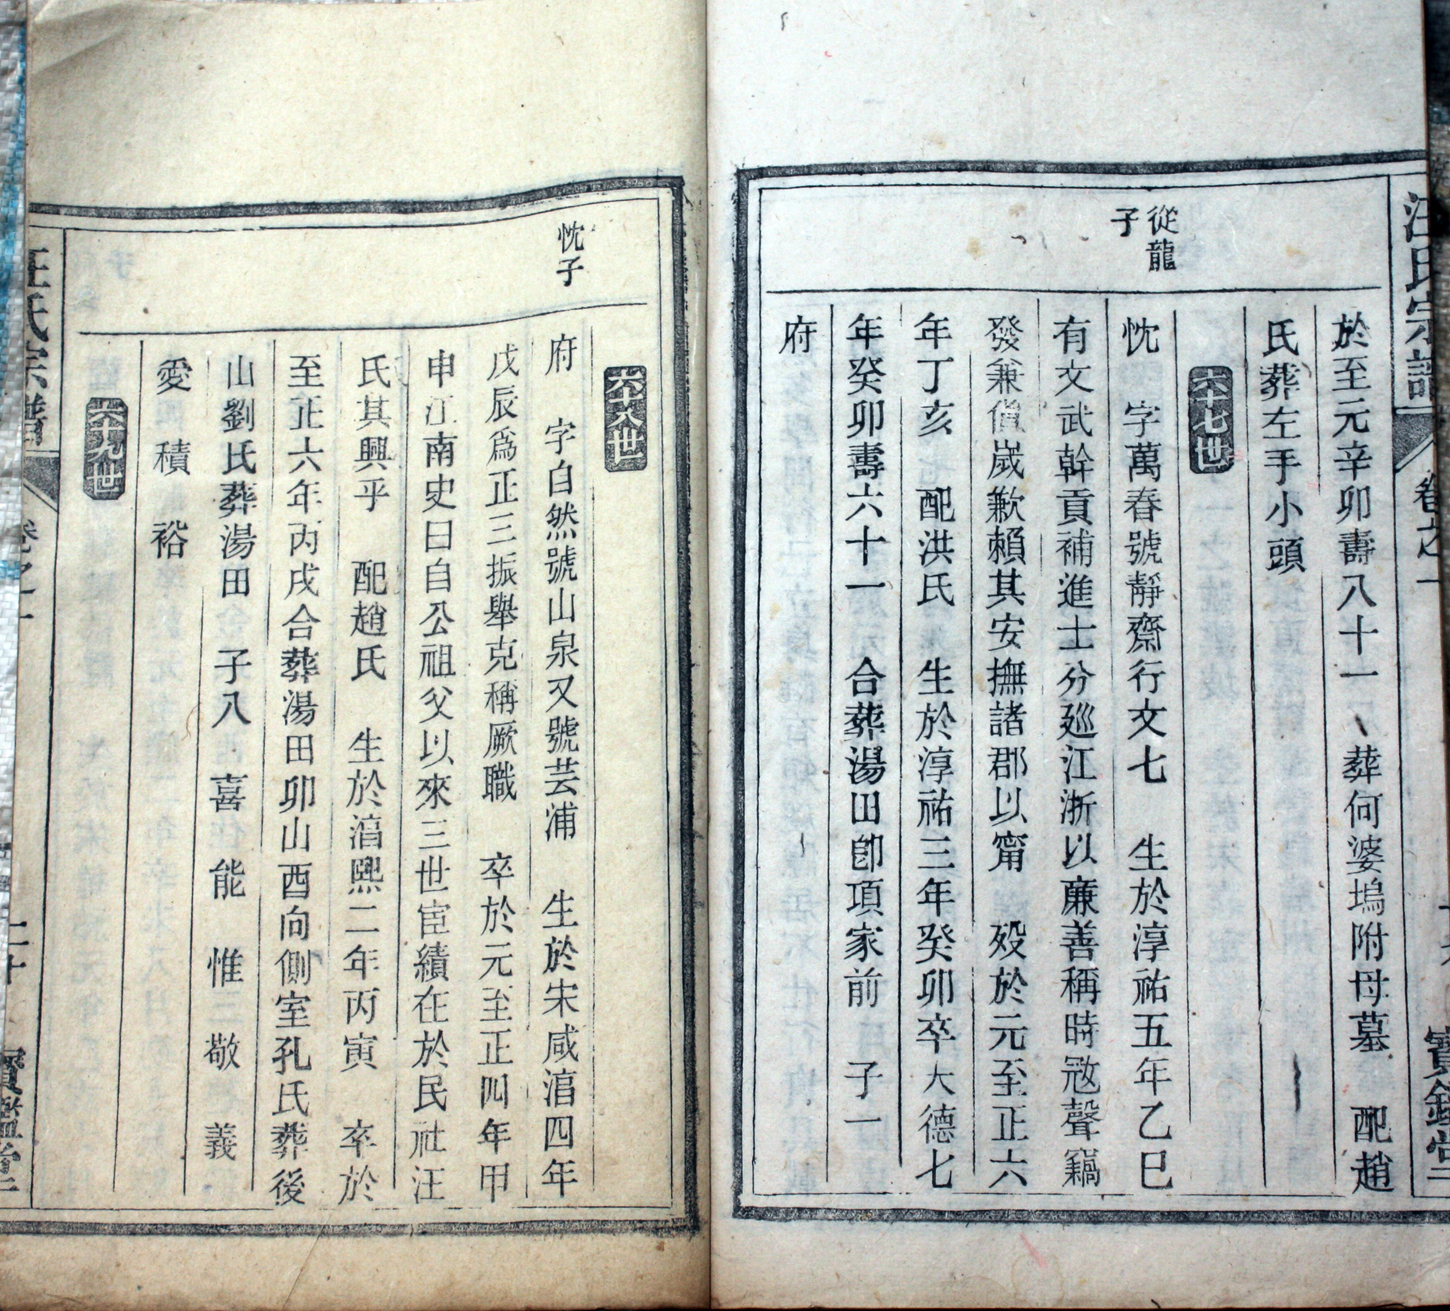 汪氏宗譜
卷之一
於至元辛卯壽八十一 葬何婆塢附母墓 配趙
氏葬左手小頭
六十七世
從龍
子
忱 字萬春號靜齋行文七 生於淳祐五年乙巳
有文武幹貢補進士分廵江浙以廉善稱時宼聲竊
發兼値歲歉賴其安撫諸郡以甯 歿於元至正六
年丁亥 配洪氏 生於淳祐三年癸卯卒大德七
年癸卯壽六十一 合葬湯田卽項家前 子一
府
六十八世
忱子
府 字自然號山泉又號芸浦 生於宋咸淯四年
戊辰爲正三振舉克稱厥職 卒於元至正四年甲
申江南史曰自公祖父以來三世宦績在於民社汪
氏其興乎 配趙氏 生於淯熙二年丙寅 卒於
至正六年丙戌合葬湯田卯山酉向側室孔氏葬後
山劉氏葬湯田 子八 喜 能 惟 敬 義
愛 積 裕
六十九世
汪氏宗譜
卷之一
二十
寶鑑堂